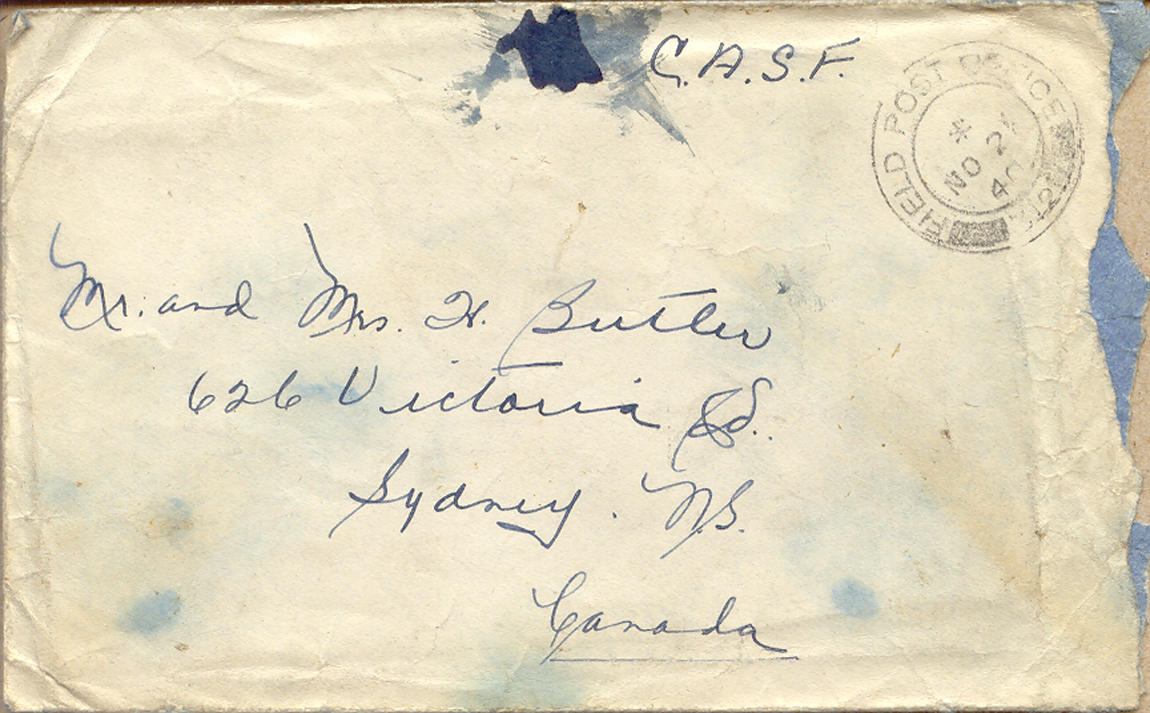 C.A.S.F.
FIELD POST OFFICE
*
NO 2
40
Mr. and Mrs. H. Butler
626 Victoria Rd.
Sydney. N.S.
Canada